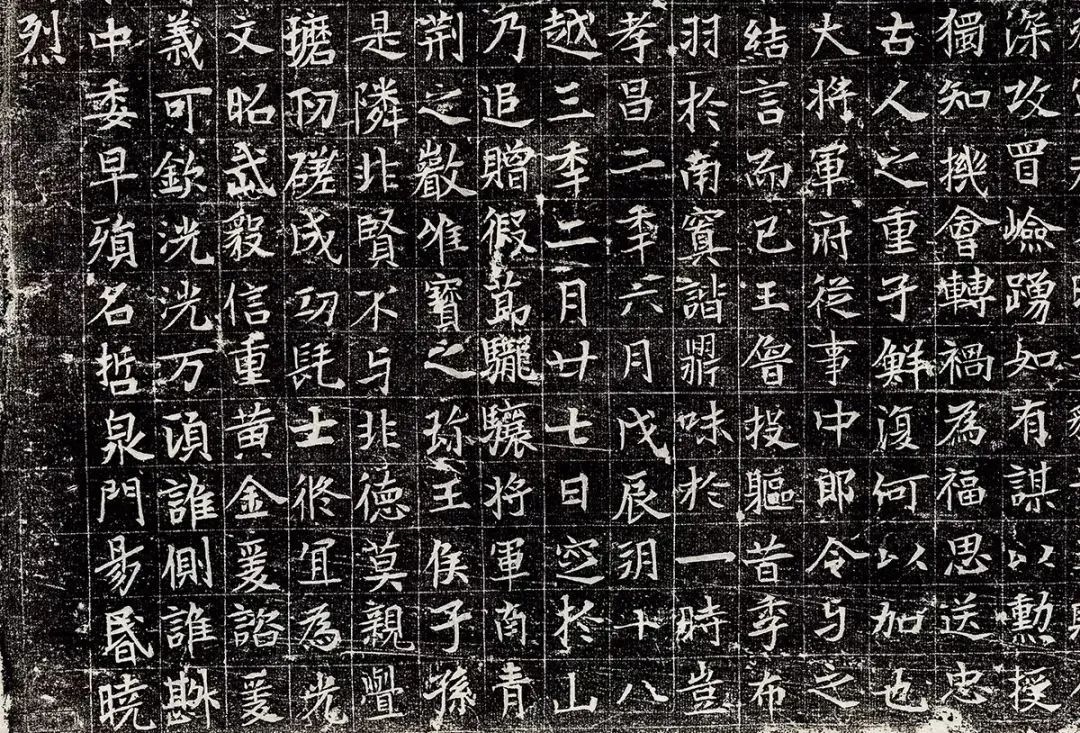 深攻冒嶮踴如有謀以勳授
獨知機會轉禍為福思送忠
古人之重子鮮復何以加也
大將軍府從事中郎令与之
結言而已王投軀昔季布
羽於南諧鼎味於一時豈
孝昌二季六月戊辰十八
越三季二月廿七日空於山
乃追贈假節驤將軍南青
荊之巖唯寶之珎王侯子孫
是隣非賢不与非德莫親
仞成功士宜為光
文昭武毅信重黃金爰諮爰
義可欽洸洸万頃誰側誰斟
中委早殞名哲泉門易昏曉
烈